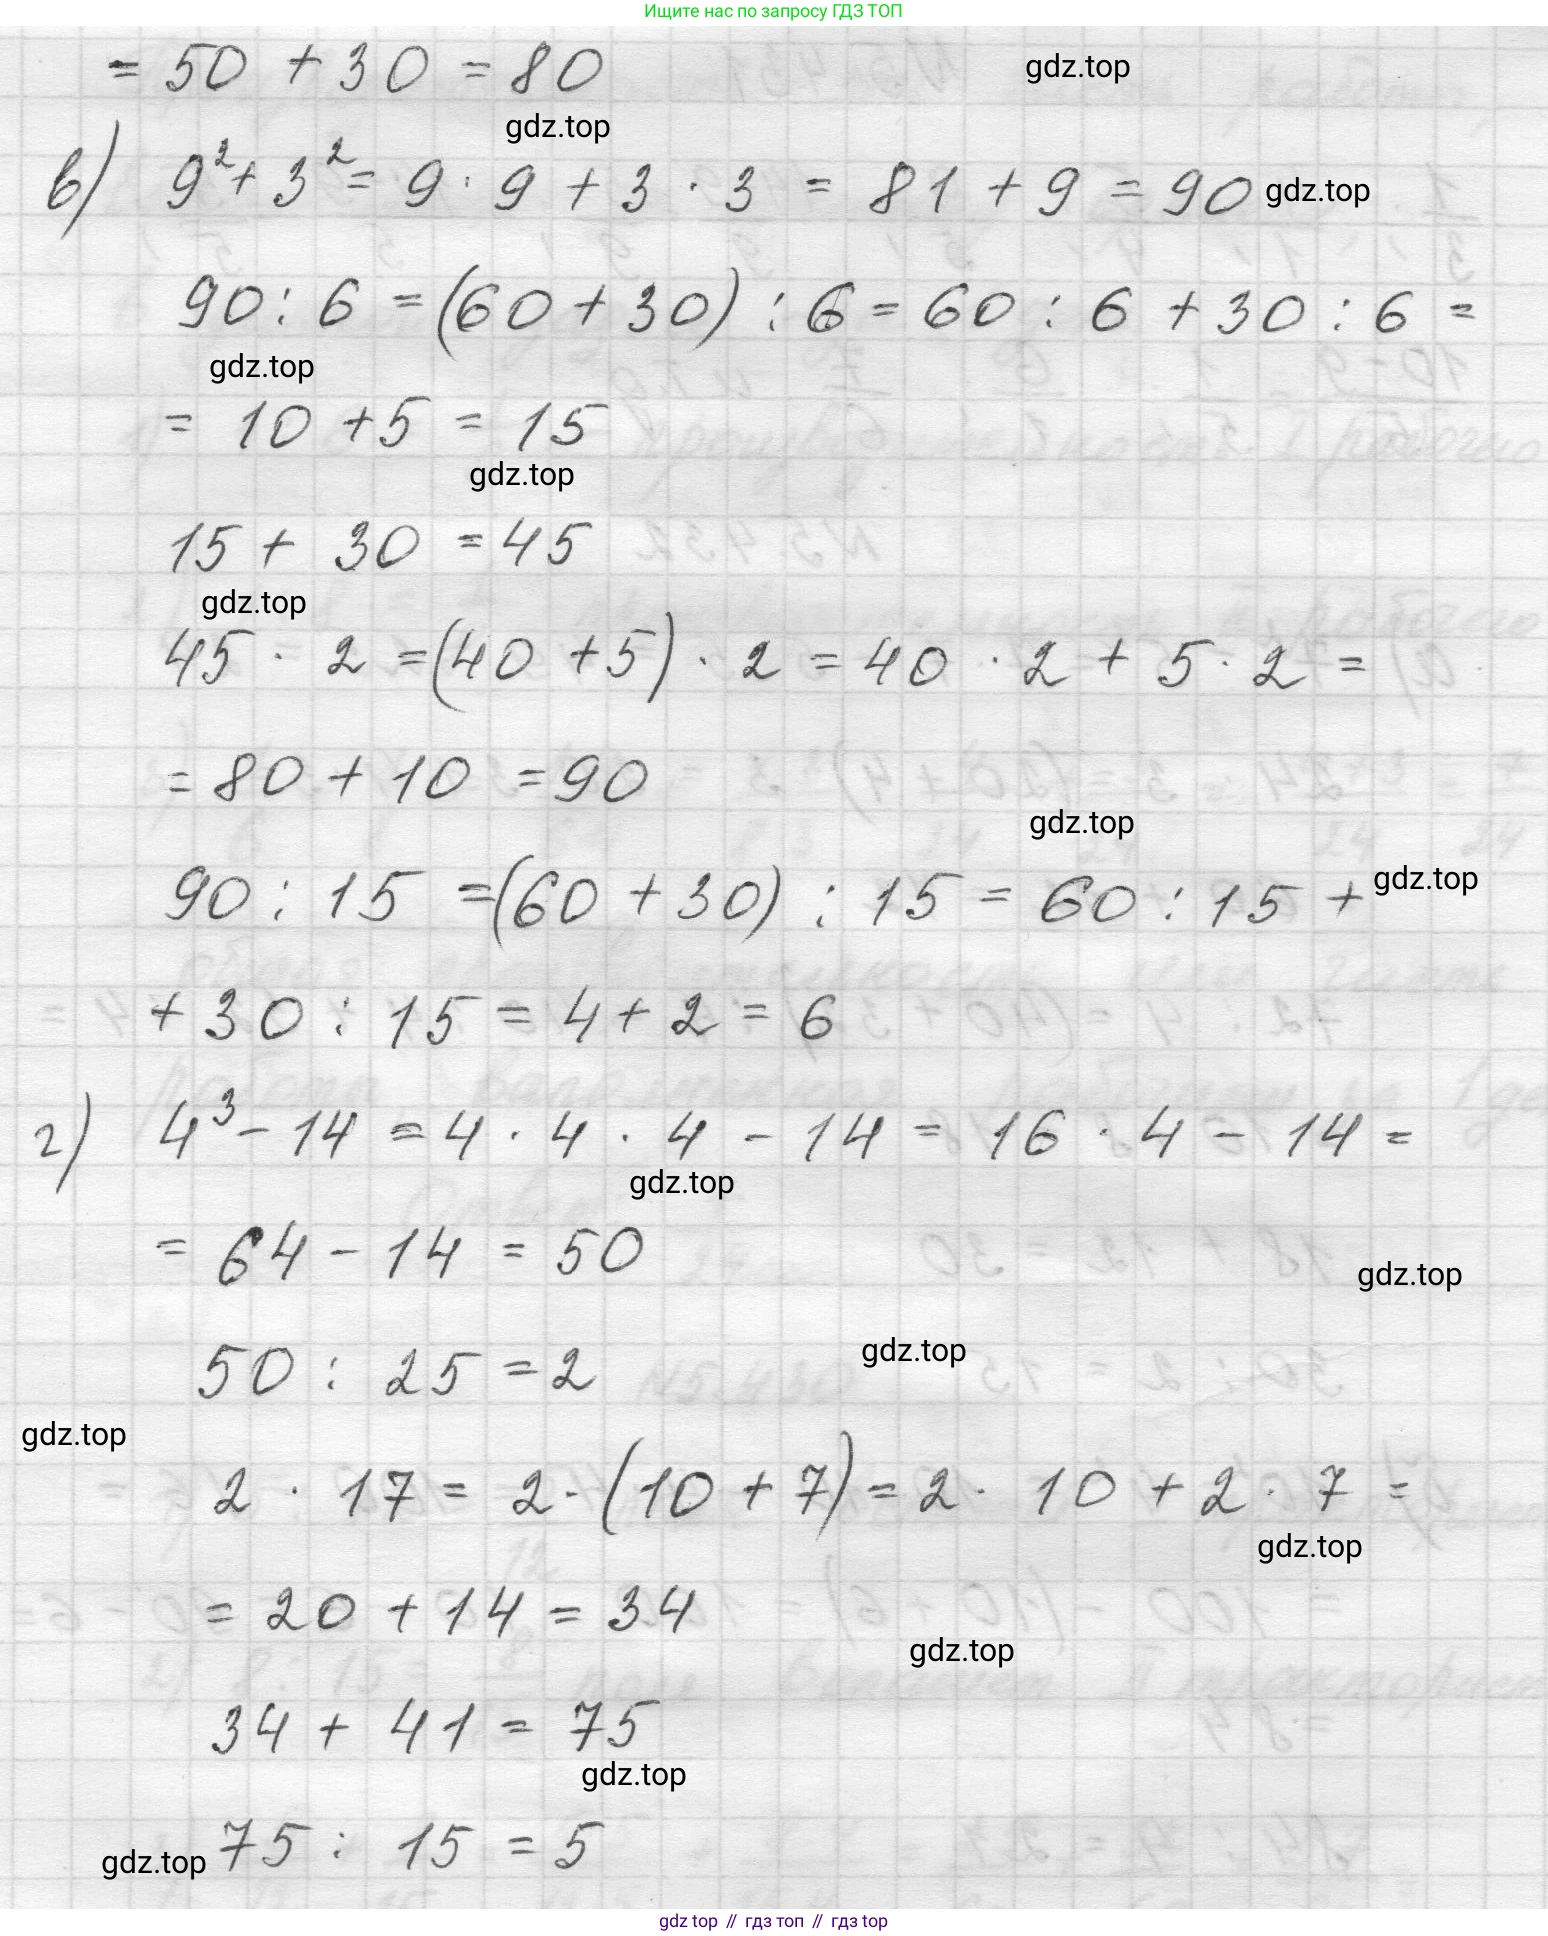 Ищите нас по запросу ГДЗ ТОП
= 50 + 30 = 80
gdz.top
gdz.top
в) 9² + 3² = 9 · 9 + 3 · 3 = 81 + 9 = 90
gdz.top
90 : 6 = (60 + 30) : 6 = 60 : 6 + 30 : 6 =
gdz.top
= 10 + 5 = 15
gdz.top
15 + 30 = 45
gdz.top
45 · 2 = (40 + 5) · 2 = 40 · 2 + 5 · 2 =
= 80 + 10 = 90
gdz.top
90 : 15 = (60 + 30) : 15 = 60 : 15 +
gdz.top
+ 30 : 15 = 4 + 2 = 6
г) 4³ - 14 = 4 · 4 · 4 - 14 = 16 · 4 - 14 =
gdz.top
= 64 - 14 = 50
gdz.top
50 : 25 = 2
gdz.top
gdz.top
2 · 17 = 2 · (10 + 7) = 2 · 10 + 2 · 7 =
gdz.top
= 20 + 14 = 34
gdz.top
34 + 41 = 75
gdz.top
75 : 15 = 5
gdz.top
gdz top // гдз топ // гдз top